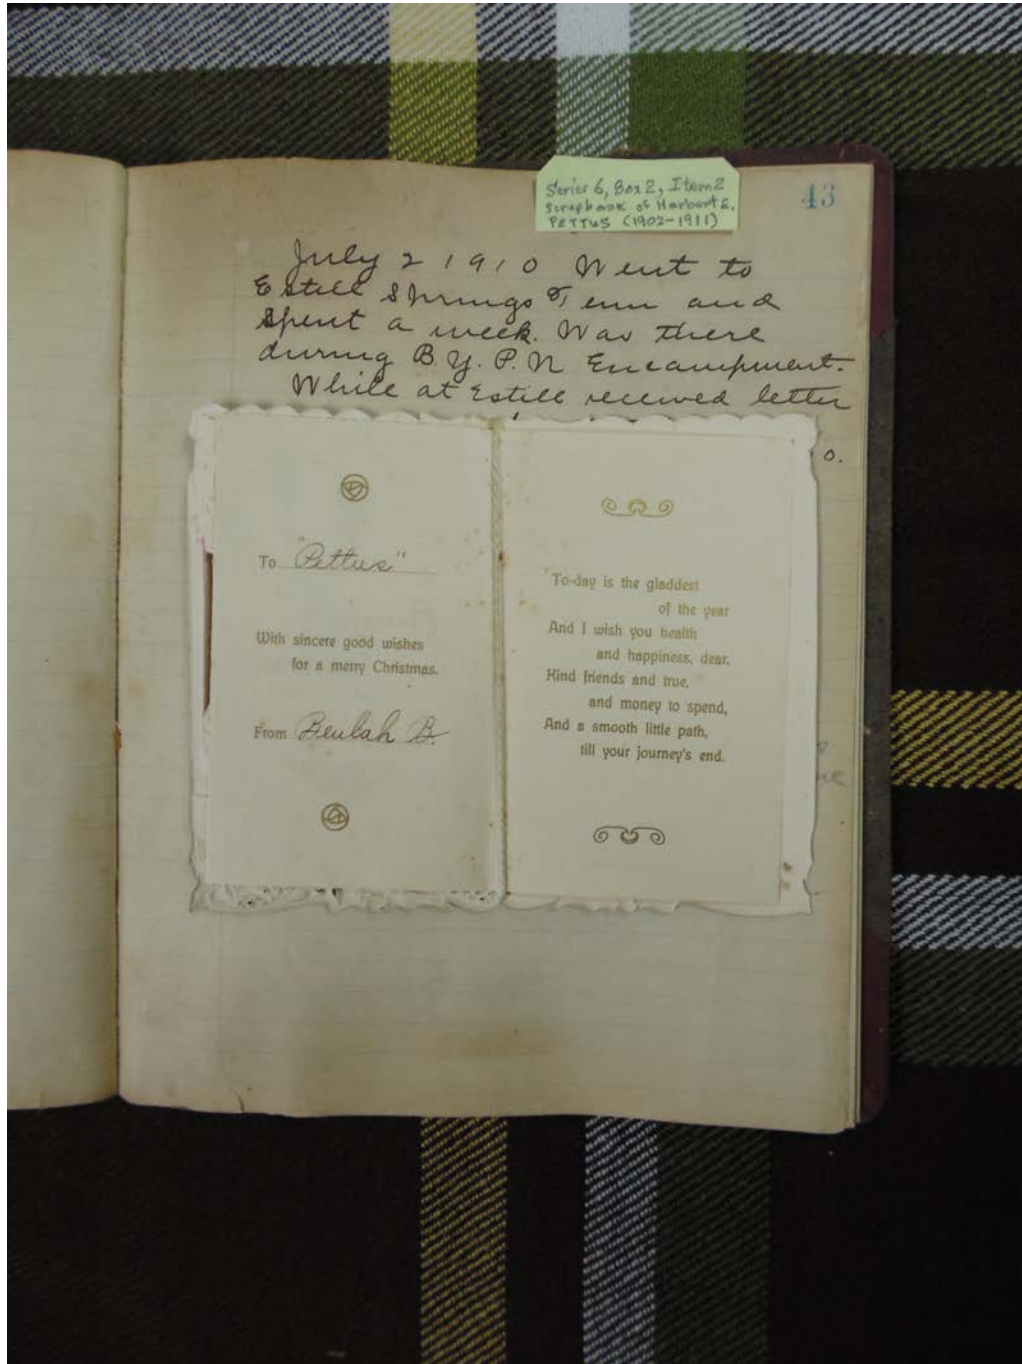 Series 6, Box 2, Item 2
Scrapbook of Harbert E.
PETTUS (1902-1911)
43
July 2 1910 Went to
Estill Springs Tenn and
Spent a week. Was there
during B. Y. P. U Encampment.
While at Estill received letter
o.
To "Pettus"
With sincere good wishes
for a merry Christmas.
From Beulah B.
To-day is the gladdest
of the year
And I wish you health
and happiness, dear,
Kind friends and true,
and money to spend,
And a smooth little path,
till your journey's end.